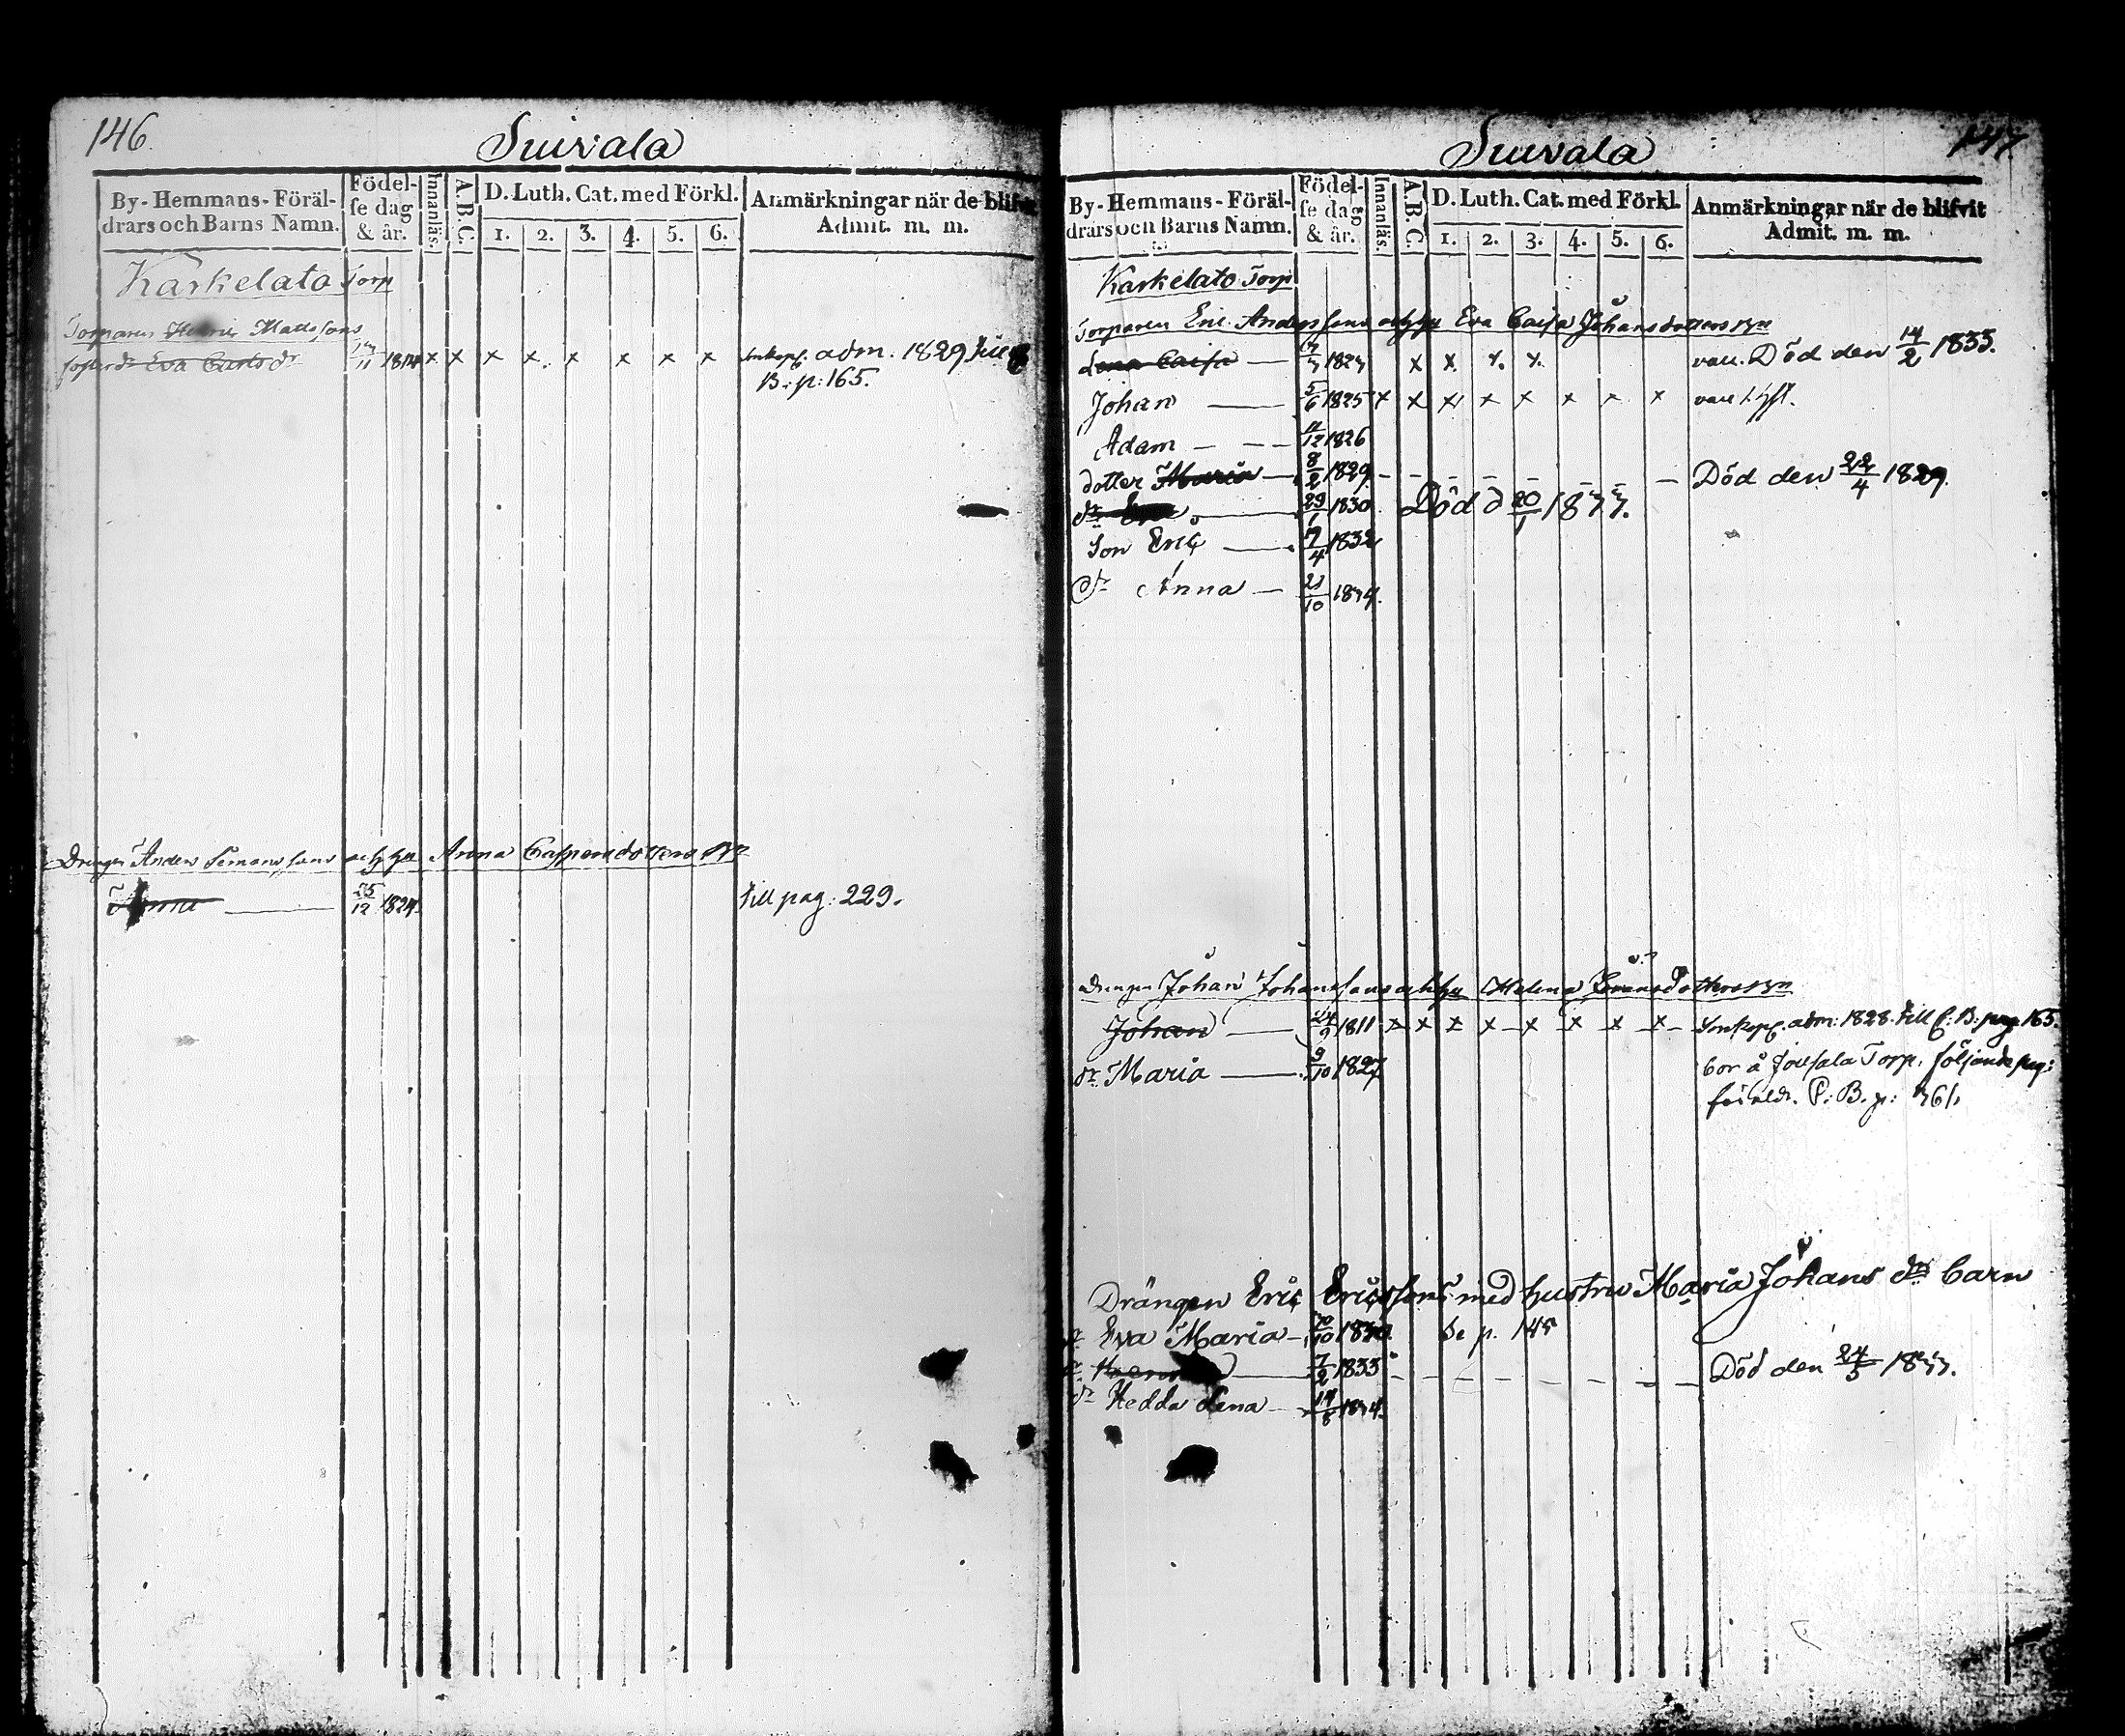 146
Suivala
By-Hemmans-Föräl-
drars och Barns Namn.
Födel-
se dag
& år.
Innanläs.
A.B.C.
D. Luth. Cat. med Förkl.
1. 2. 3. 4. 5. 6.
Anmärkningar när de blifvit
Admit. m. m.
Karkelato Torp
Torparen Henric Matts sons
foster dr Eva Carls dr 11 1814 x x x x x x x x adm. 1829
B: p: 165.
Drängen Anders sons och hu Anna Caspersdotters Bn
Anna 25/12 1824. till pag: 229.
147
Suivala
By-Hemmans-Föräl-
drars och Barns Namn.
Födel-
se dag
& år.
Innanläs.
A.B.C.
D. Luth. Cat. med Förkl.
1. 2. 3. 4. 5. 6.
Anmärkningar när de blifvit
Admit. m. m.
Karkelato Torp
Torparen Eric Anders sons och hu Eva Caisa Johansdotters Bn
Lena Caisa x x x x vacc. Död den 14/2 1833.
Johan 5/6 1825 x x x x x x x x vacc.
Adam 11/12 1826
dotter Maria 8/2 1829 Död den 22/4 1829.
dr Eva 29/1 1830 Död d 20/1 1833.
Son Eric 7/4 1832
dr Anna 21/10 1834.
Drengen Johan Johans sons och hu Helena dotters Bn
Johan 24/9 1811 x x x x x x x x adm: 1828. till C: B: pag 165.
dr Maria 9/10 1827 bor å Torp, följande pag:
C: B. p: 361.
Drängen Eric Ericssons med hustru Maria Johans drs barn
dr Eva Maria 1830. Se p. 145
7/2 1833 Död den 24/5 1833.
dr Hedda Lena 14/8 1834.